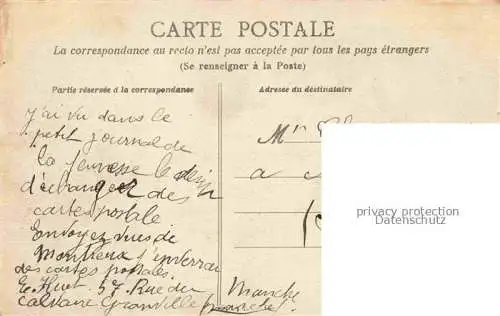 CARTE POSTALE
La correspondance au recto n'est pas acceptée par tous les pays étrangers
(Se renseigner à la Poste)
Partie réservée à la correspondance
Adresse du destinataire
J'ai vu dans le
petit journal de
la jeunesse le désir
d'échanger des
cartes postale
Envoyez vues de
Monsieur j'enverrai
des cartes postales.
E. Huet. 57 Rue du
Calvaire Granville
Manche
M
a
Manche
privacy protection
Datenschutz